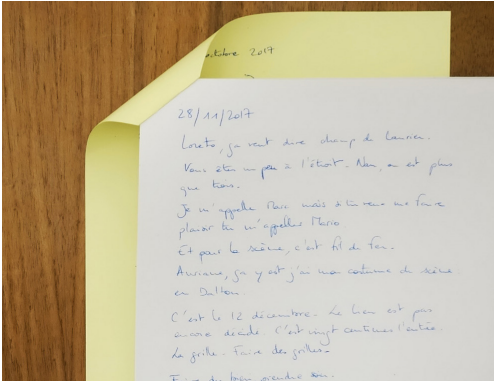 octobre 2017
28/11/2017
Loreto, ça veut dire champ de laurier.
Vous êtes un peu à l'étroit. Non, on est plus
que trois.
Je m'appelle Marc mais si tu veux me faire
plaisir tu m'appelles Mario
Et pour la scène, c'est fil de fer.
Auriane, ça y est j'ai mon costume de scène
en Dalton.
C'est le 12 décembre. Le lieu est pas
encore décidé. C'est vingt centimes l'entrée.
La grille. Faire des grilles.
Faire du bien prendre son.